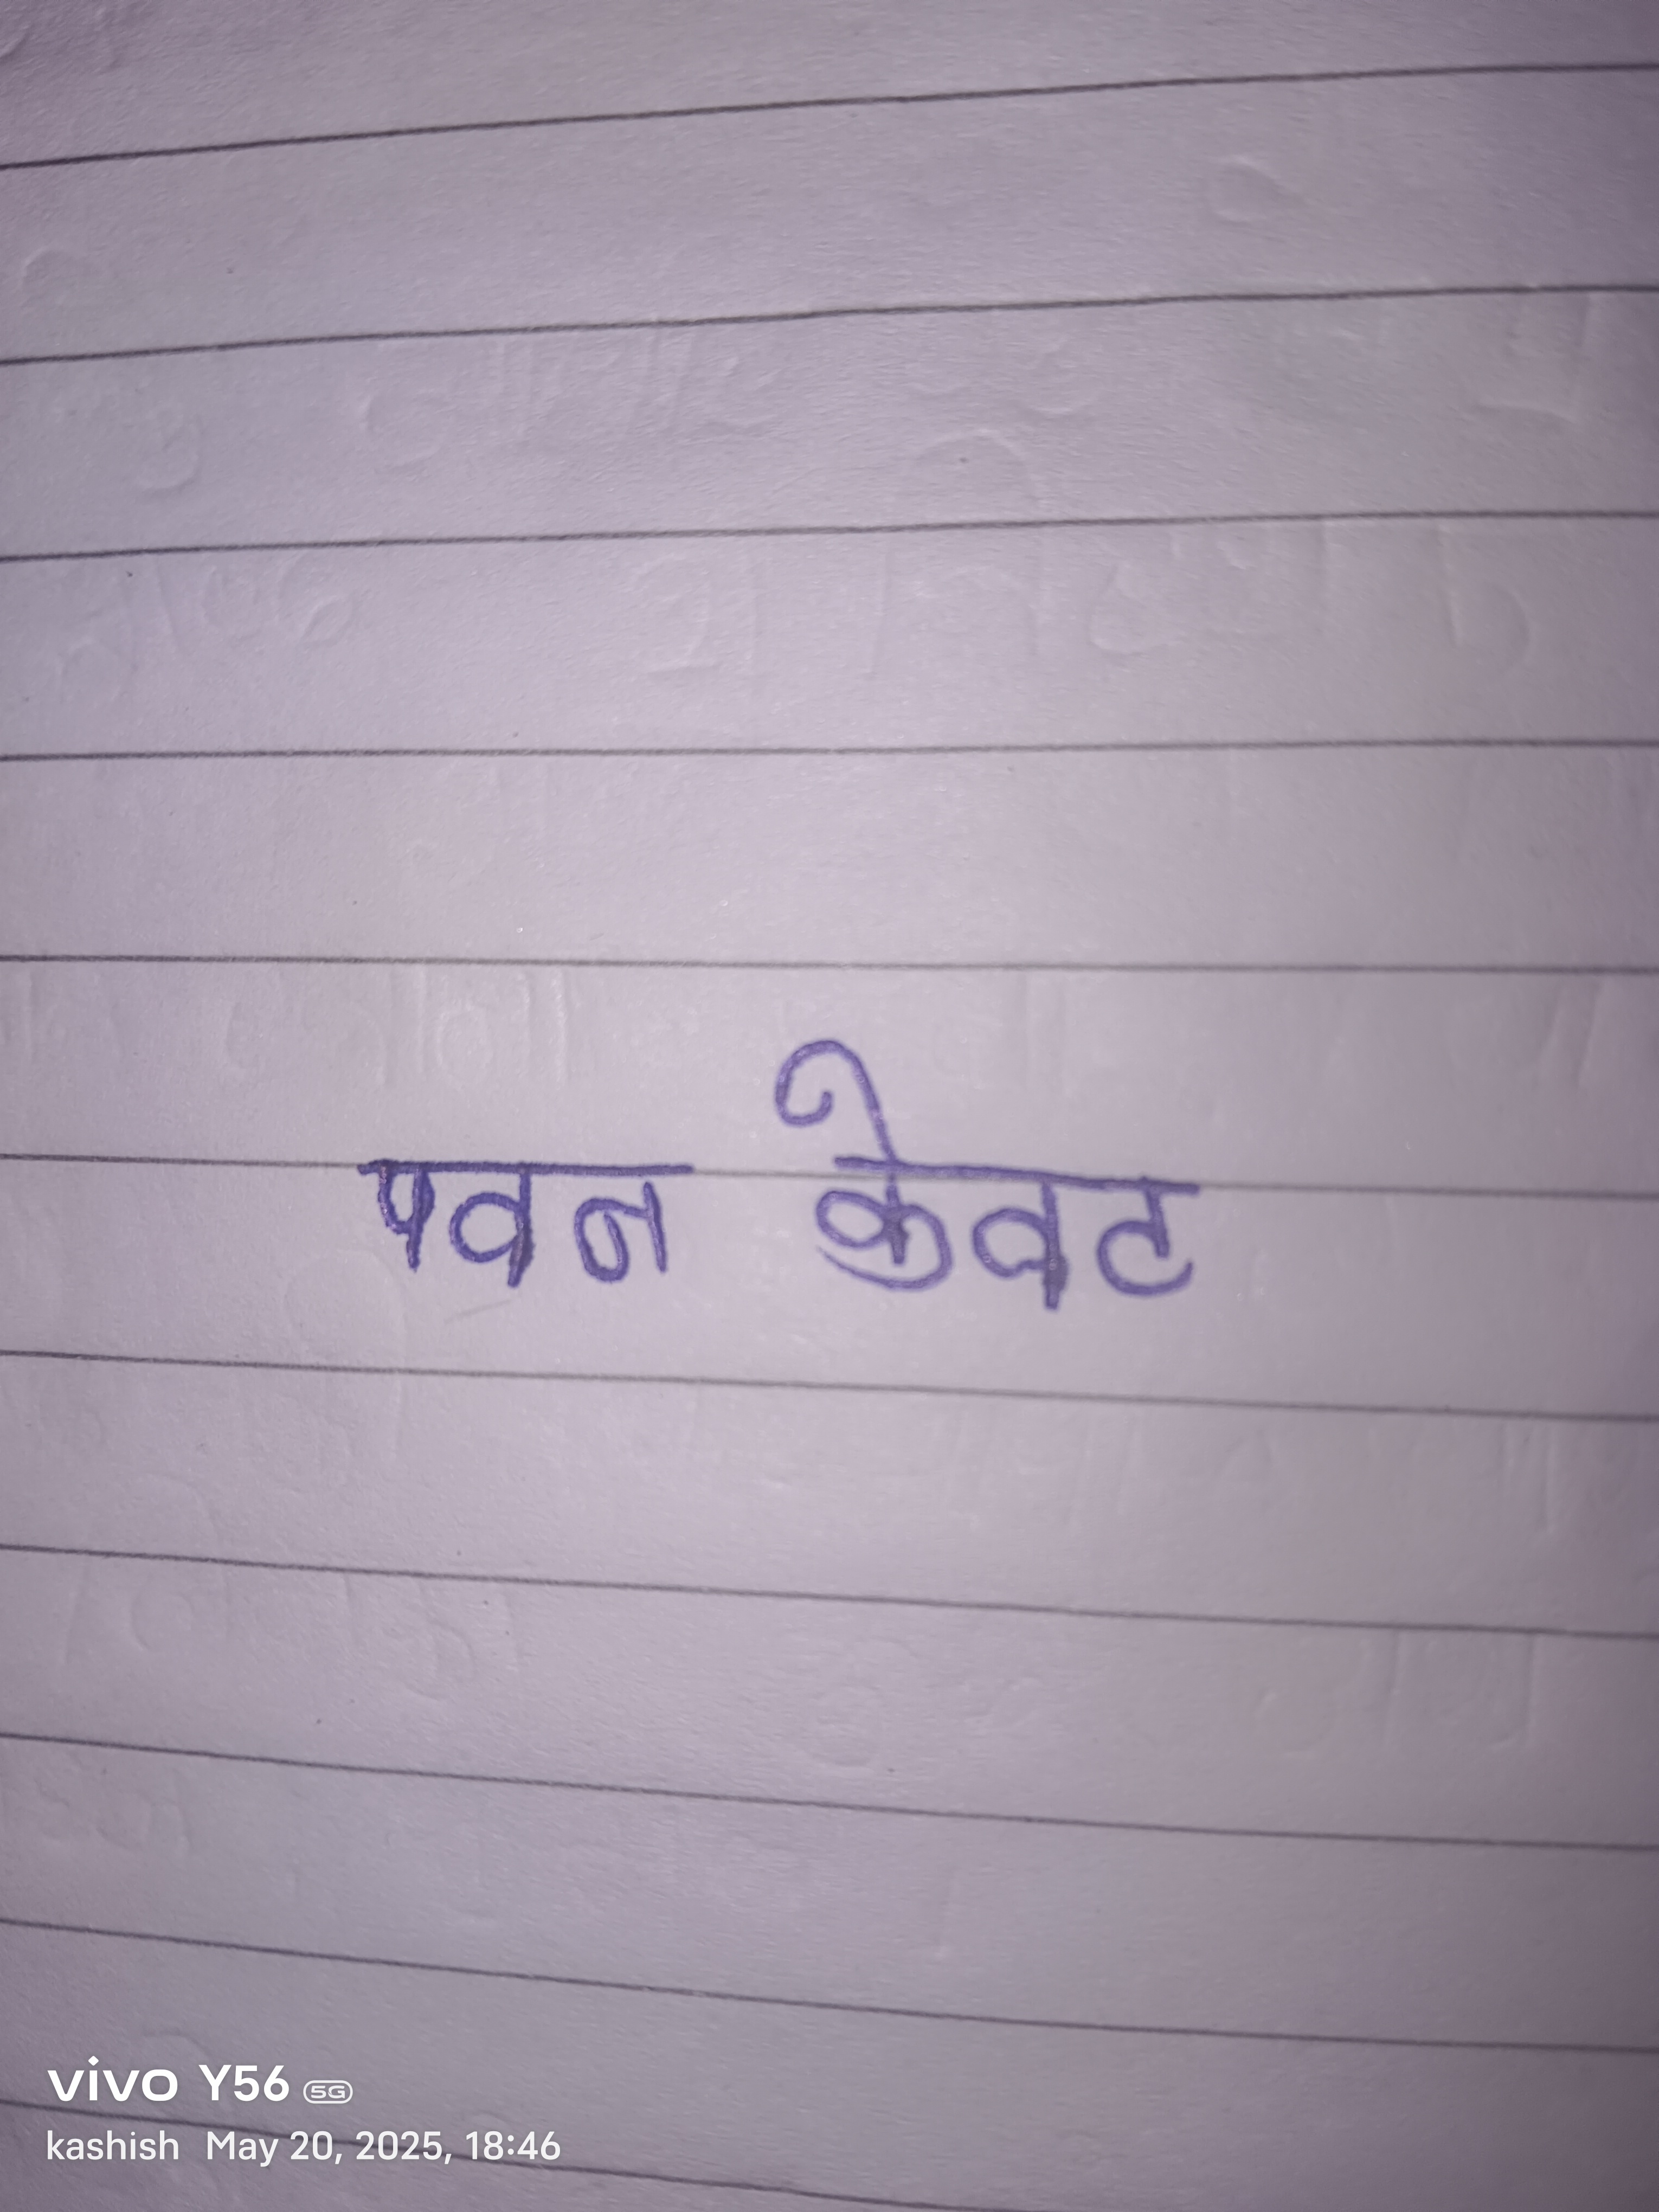 पवन केवट
vivo Y56 5G
kashish May 20, 2025, 18:46